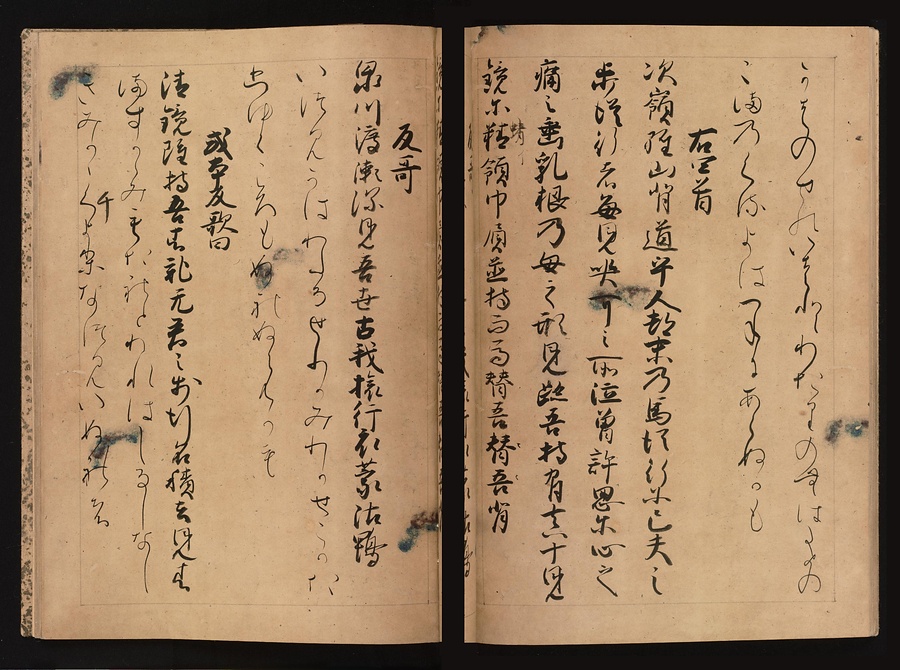 かはのせのいそとわたりのむはたまの
こまのくるよはつねにあらぬかも
右四首
次嶺經山背道乎人都末乃馬従行尓己夫之
歩従行者毎見哭耳之所泣曾許思尓心之
痛之垂乳根乃母之形見跡吾持有真十見
鏡尓精領巾屓並持而馬替吾替吾背
反哥
泉川渡瀬深見吾世古我旅行衣蒙沾鴨
いつみかはわたるせふかみわかせこかた
ひゆくころもぬれぬらむかも
或本反歌曰
清鏡雖持吾者礼无君之歩行名積去見者
ますかゝみもたれとわれはしるしなし
きみかかちよりなつみいぬれは